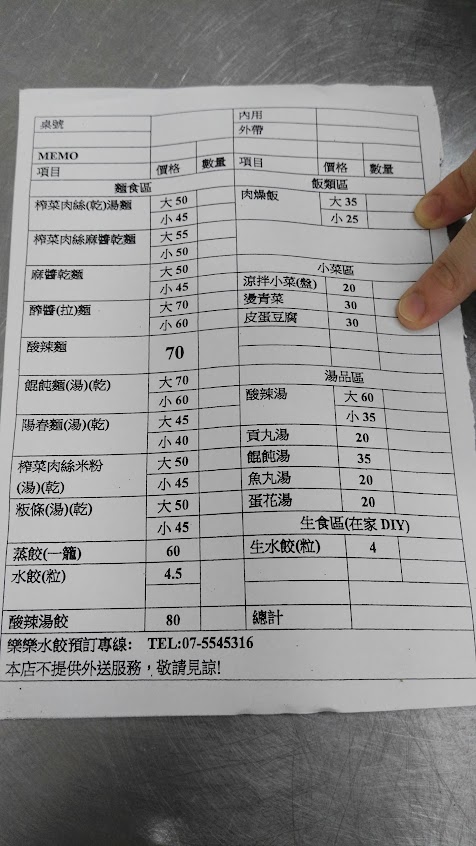 桌號
內用
外帶
MEMO
項目 價格 數量
麵食區
榨菜肉絲(乾)湯麵 大 50
小 45
榨菜肉絲麻醬乾麵 大 55
小 50
麻醬乾麵 大 50
小 45
醡醬(拉)麵 大 70
小 60
酸辣麵 70
餛飩麵(湯)(乾) 大 70
小 60
陽春麵(湯)(乾) 大 45
小 40
榨菜肉絲米粉 大 50
(湯)(乾) 小 45
粄條(湯)(乾) 大 50
小 45
蒸餃(一籠) 60
水餃(粒) 4.5
酸辣湯餃 80
項目 價格 數量
飯類區
肉燥飯 大 35
小 25
小菜區
涼拌小菜(盤) 20
燙青菜 30
皮蛋豆腐 30
湯品區
酸辣湯 大 60
小 35
貢丸湯 20
餛飩湯 35
魚丸湯 20
蛋花湯 20
生食區(在家 DIY)
生水餃(粒) 4
總計
樂樂水餃預訂專線: TEL:07-5545316
本店不提供外送服務，敬請見諒!